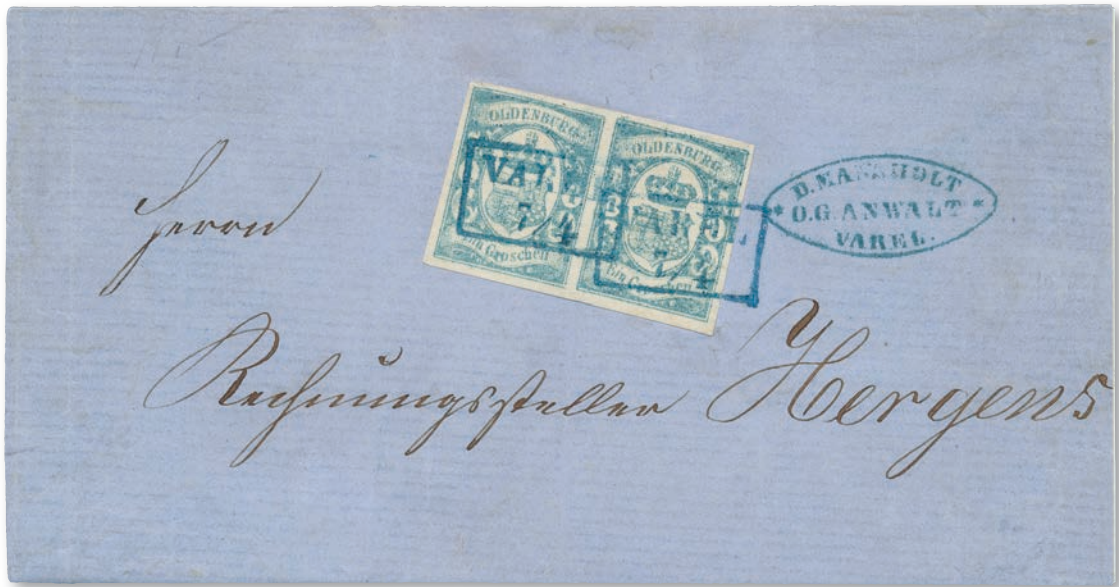 OLDENBURG
Ein Groschen
VAREL
7/4
OLDENBURG
Ein Groschen
VAREL.
7/4
D. MANSHOLT
* O.G. ANWALT *
VAREL.
Herrn
Rechnungssteller Hergens